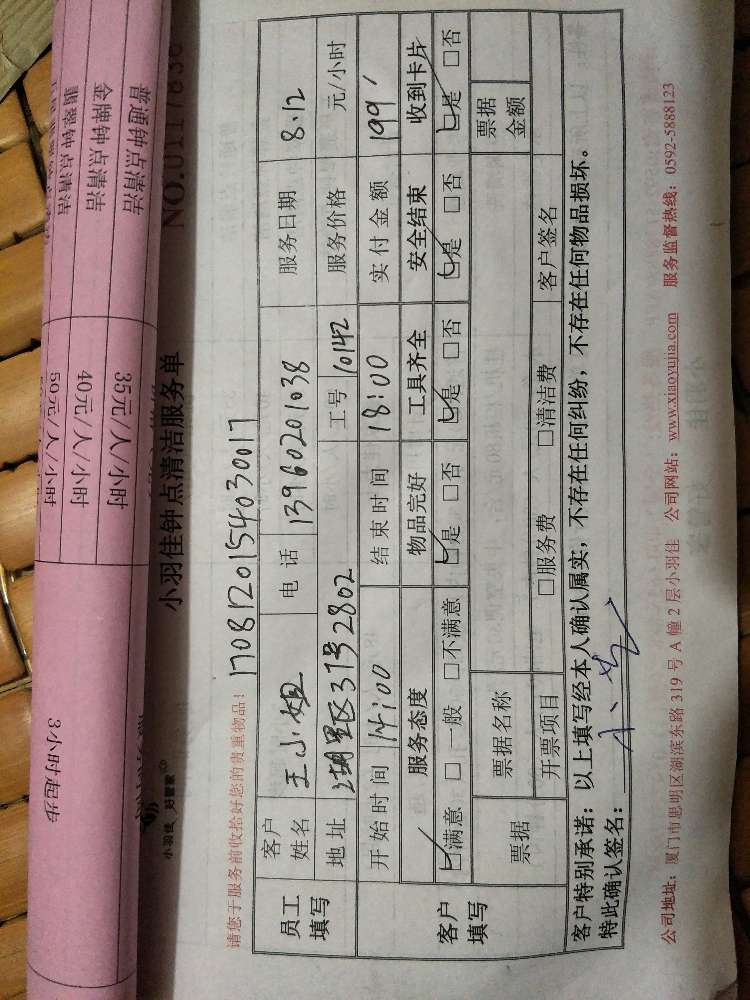 普通钟点清洁 35元/人/小时 3小时起步
金牌钟点清洁 40元/人/小时
翡翠钟点清洁 50元/人/小时
小羽佳 好管家
小羽佳钟点清洁服务单
请您于服务前收拾好您的贵重物品!
1708120154030017
员工填写
客户姓名 王小姐 电话 13960201038 服务日期 8.12
地址 31号2802 工号 10142 服务价格 元/小时
客户填写
开始时间 14:00 结束时间 18:00 实付金额 199
服务态度 物品完好 工具齐全 安全结束 收到卡片
☑满意 □一般 □不满意 ☑是 □否 ☑是 □否 ☑是 □否 ☑是 □否
票据 票据名称 票据金额
开票项目 □服务费 □清洁费 客户签名
客户特别承诺:以上填写经本人确认属实,不存在任何纠纷,不存在任何物品损坏。
特此确认签名:
公司地址:厦门市思明区湖滨东路319号A幢2层小羽佳 公司网站:www.xiaoyujia.com 服务监督热线:0592-5888123